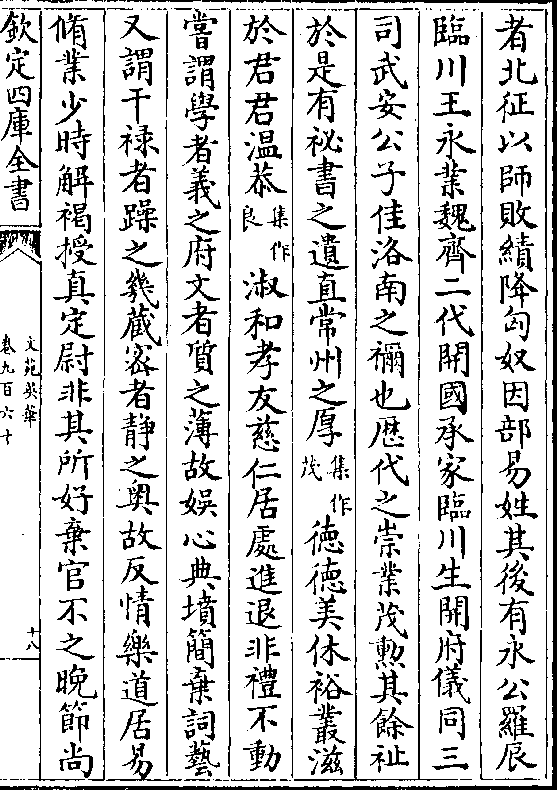 者北征以師敗績降匈奴因部易姓其後有永公羅辰
臨川王永業魏齊二代開國承家臨川生開府儀同三
司武安公子佳洛南之禰也歴代之崇業茂勲其餘祉
於是有祕書之遺直常州之厚集作茂徳徳美休裕叢滋
於君君温恭集作良淑和孝友慈仁居處進退非禮不動
嘗謂學者義之府文者質之薄故娯心典墳簡棄詞藝
又謂干禄者躁之幾藏密者静之奥故反情樂道居易
脩業少時解褐授真定尉非其所好棄官不之晩節尚
欽定四庫全書
文苑英華
卷九百六十
十八